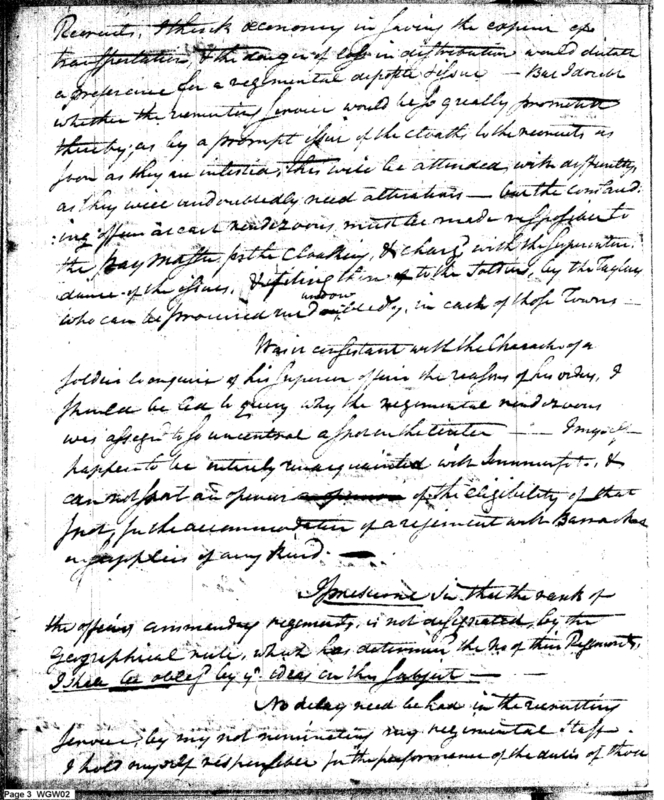 Recruits, I think œconomy in saving the expence of
transportation, & the danger of loss in distribution would dictate
a preference for a regimental deposite & issue — But I doubt
whether the recruiting service would be so greatly promoted
thereby, as by a prompt issue of the cloaths to the recruits as
soon as they are inlisted, this will be attended, with difficulties
as they will undoubtedly need alterations — but the command
:ing officer at each rendezvous, must be made responsible to
the pay Master for the Cloathing, & charg'd with the superinten:
dance of the issues, & fitting them to the Soldier, by the Taylors
who can be procured undoubtedly, in each of those Towns —
Was it consistant with the Character of a
soldier to enquire of his superior officer the reasons of his orders, I
should be led to query why the regimental rendezvous
was assegn'd to so uncentral a spot in the circle — I myself
happen to be entirely unacquainted with &
can not form an openion of the eligibility of that
spot, for the accommodation of a regiment with Barracks
or supplies of any kind. —
I presume Sir that the rank of
the officers commanding regiments, is not designated, by the
geographical rule, which has determin'd the No of their Regiments,
I shall be oblegd by yr ideas on this subject —
No delay need be had in the recruiting
service, by my not nominating my regimental Staff.
I hold myself responsible for the performance of the duties of those
Page 3 WGW02